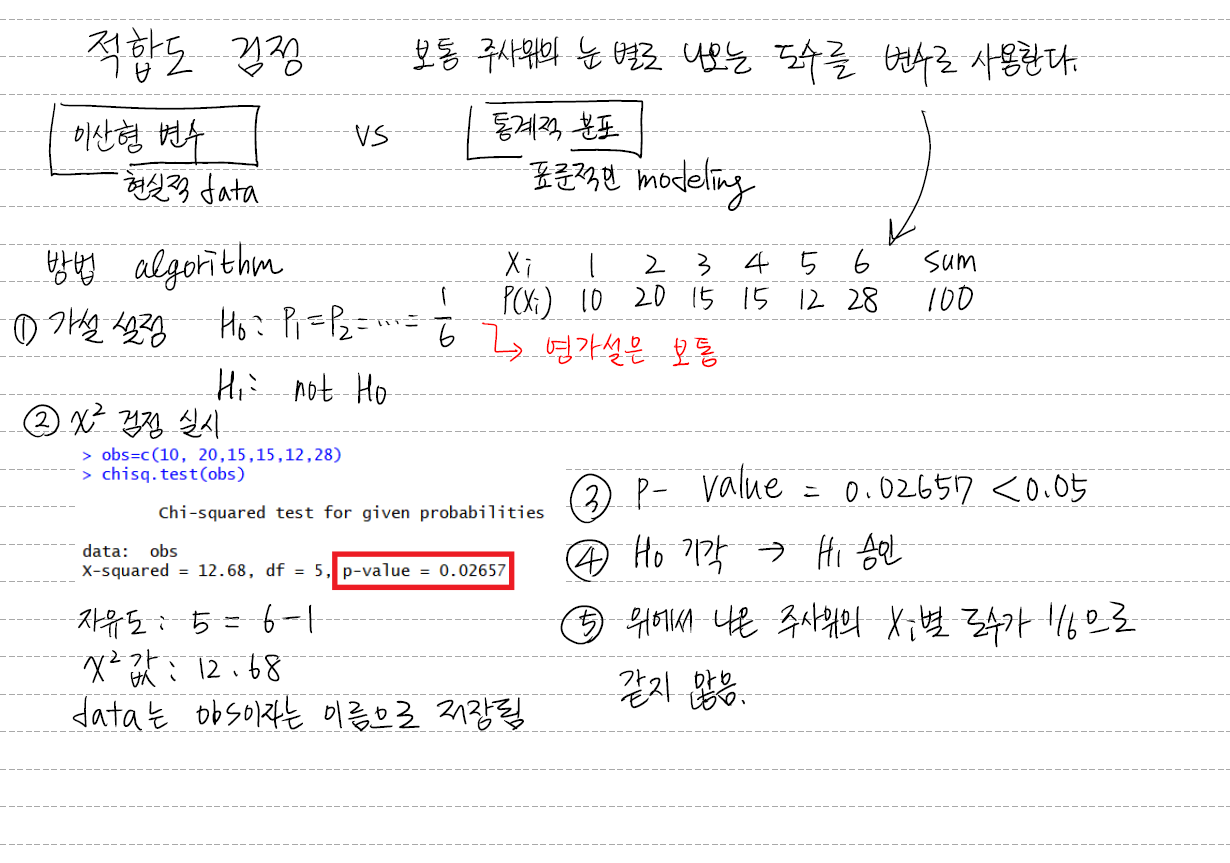 적합도 검정 보통 주사위의 눈 별로 나오는 도수를 변수로 사용한다.
이산형 변수 vs 통계적 분포
현실적 data 표준적인 modeling
방법 algorithm
Xi 1 2 3 4 5 6 sum
P(Xi) 10 20 15 15 12 28 100
① 가설 설정 H0: P1=P2=...=1/6
영가설은 보통
H1: not H0
② χ² 검정 실시
> obs=c(10, 20,15,15,12,28)
> chisq.test(obs)
Chi-squared test for given probabilities
data: obs
X-squared = 12.68, df = 5, p-value = 0.02657
자유도 : 5 = 6-1
χ² 값 : 12.68
data는 obs이라는 이름으로 저장됨
③ P- value = 0.02657 < 0.05
④ H0 기각 → H1 승인
⑤ 위에서 나온 주사위의 Xi별 도수가 1/6으로
같지 않음.